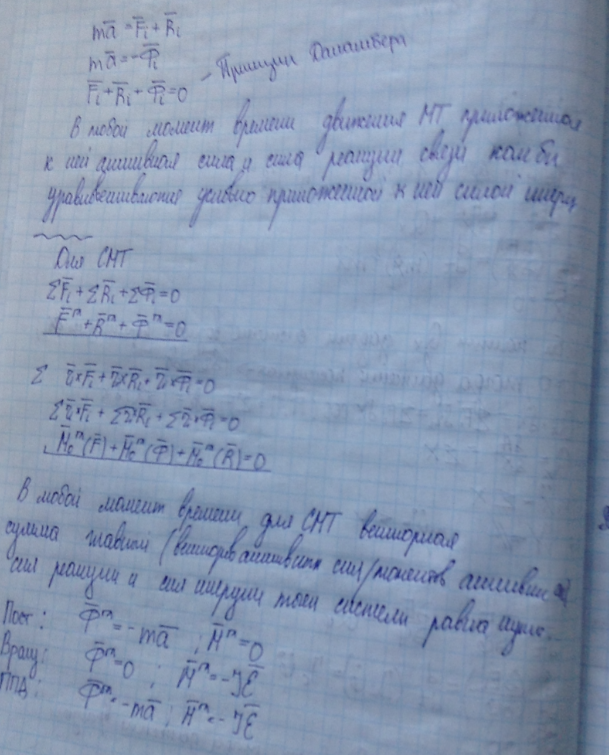 ma̅ = F̅ᵢ + R̅ᵢ
ma̅ = -Φ̅ᵢ
F̅ᵢ + R̅ᵢ + Φ̅ᵢ = 0 – Принцип Даламбера
В любой момент времени движения МТ приложенная
к ней активная сила и сила реакции связи как бы
уравновешивается условно приложенной к ней силой инерц
Для СМТ
ΣF̅ᵢ + ΣR̅ᵢ + ΣΦ̅ᵢ = 0
F̅ᵐ + R̅ᵐ + Φ̅ᵐ = 0
Σ r̅ᵢ×F̅ᵢ + r̅ᵢ×R̅ᵢ + r̅ᵢ×Φ̅ᵢ = 0
Σr̅ᵢ×F̅ᵢ + Σr̅ᵢR̅ᵢ + Σr̅ᵢ×Φ̅ᵢ = 0
M̅₀ᵐ(F̅) + M̅₀ᵐ(Φ̅) + M̅₀ᵐ(R̅) = 0
В любой момент времени для СМТ векторная
сумма главных (векторов активных сил/моментов активных
сил реакции и сил инерции этой системы равна нулю.
Пост: Φ̅ᵐ = -ma̅ ; M̅ᵐ = 0
Вращ: Φ̅ᵐ = 0 ; M̅ᵐ = -Jε̅
ППД: Φ̅ᵐ = -ma̅ ; M̅ᵐ = -Jε̅